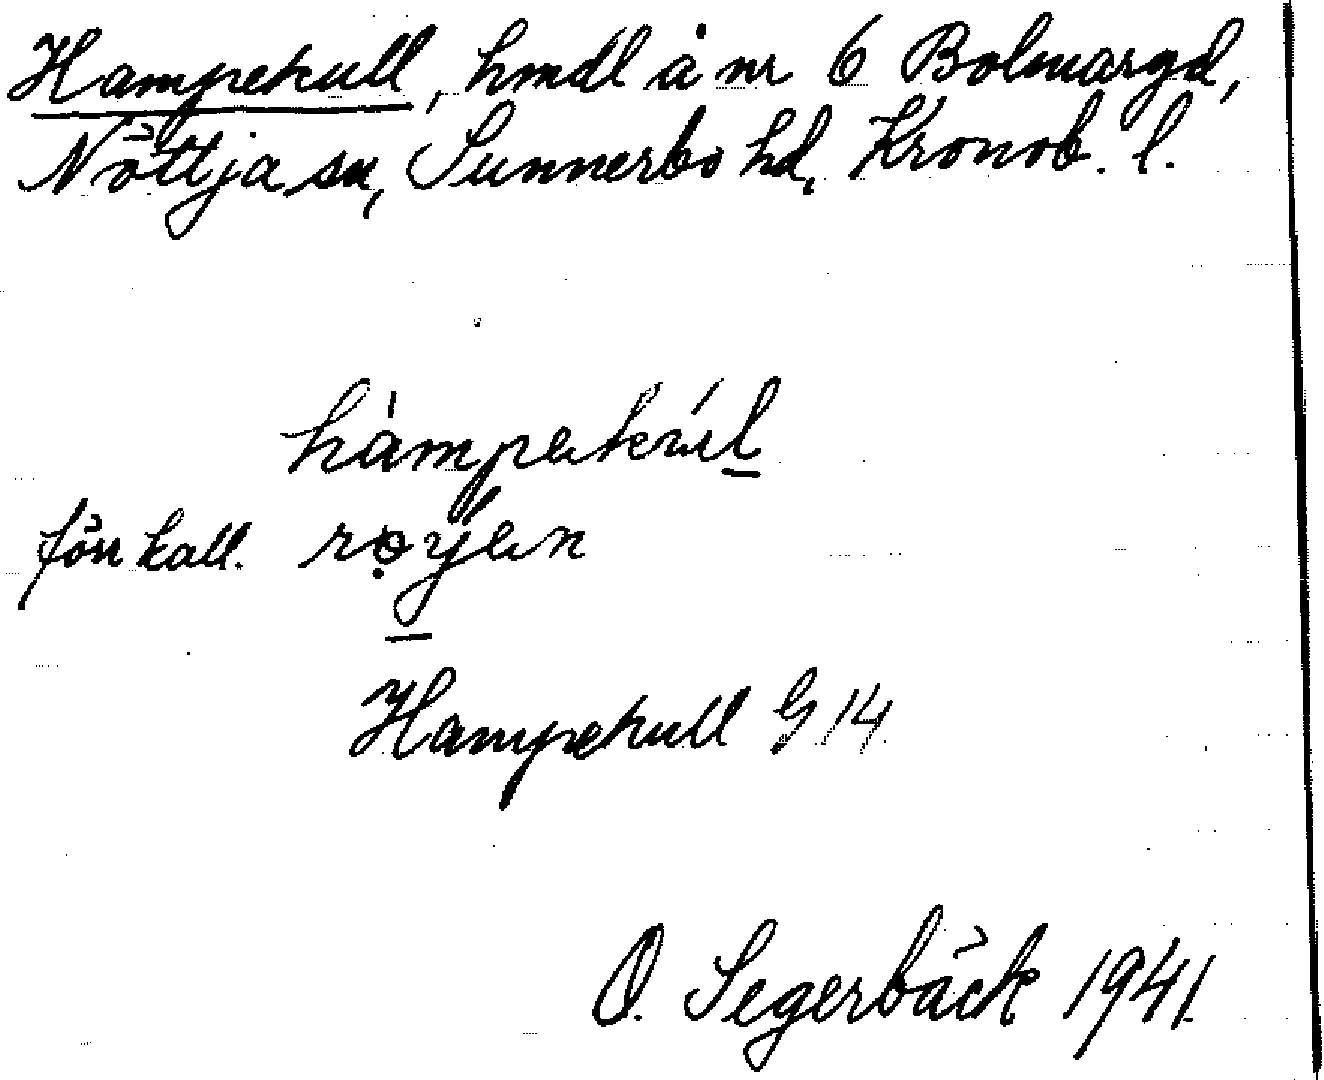 Hampekull, hmdl å nr 6 Bolmargd,
Nöttja sn, Sunnerbo hd, Kronob. l.
hàmpekúl
förr kall.
Hampekull G 14
O. Segerbäck 1941.